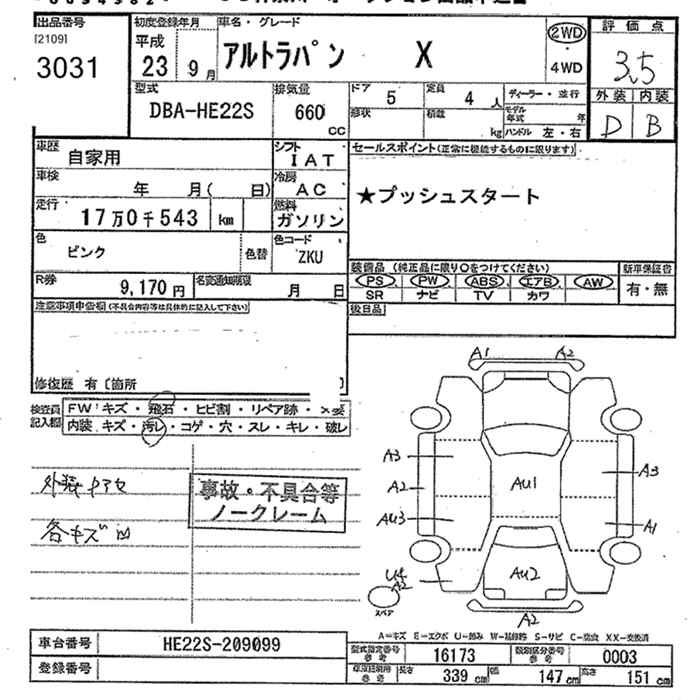 出品番号
[2109]
3031
初度登録年月
平成
23 9月
車名・グレード
アルトラパン X
2WD
4WD
評価点
3.5
外装 内装
D B
型式
DBA-HE22S
排気量
660
cc
ドア 5
定員 4 人
ディーラー・並行
形状
積載 kg
モデル年式 年
ハンドル 左・右
車歴
自家用
シフト
IAT
セールスポイント(正常に機能するものに限ります)
★プッシュスタート
車検
年 月( 日)
冷房
AC
走行
17万0千543 km
燃料
ガソリン
色
ピンク
色替
色コード
ZKU
R券
9,170円
月 日
装備品 (純正品に限り○をつけてください)
新車保証書
PS PW ABS エアB AW
有・無
SR ナビ TV カワ
後日品
注意事項申告欄(不具合内容等は具体的に記入して下さい)
修復歴 有〔箇所 〕
検査員記入欄
FW キズ・飛石・ヒビ割・リペア跡・
内装 キズ・汚レ・コゲ・穴・スレ・キレ・破レ
各キズ凹
事故・不具合等
ノークレーム
A1 A2
A3 A3
A2
AU1
AU3 A1
AU2
U4
A2
スペア
A2
A=キズ E=エクボ U=凹み W=補修跡 S=サビ C=腐食 XX=交換済
車台番号
HE22S-209099
登録番号
型式指定番号
参考
16173
類別区分番号
参考
0003
参考
長さ 339 cm 幅 147 cm 高さ 151 cm